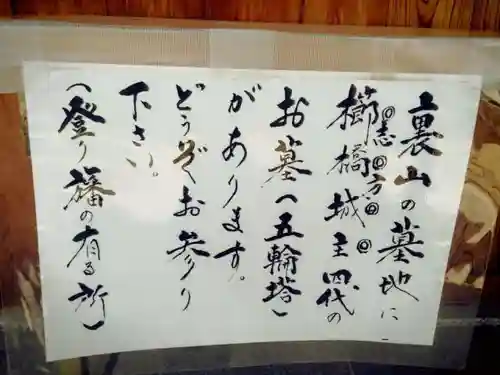 裏山の墓地に
志方
櫛橋城主四代の
お墓（五輪塔）
があります。
どうぞお参り
下さい。
（登り旛の有る所）